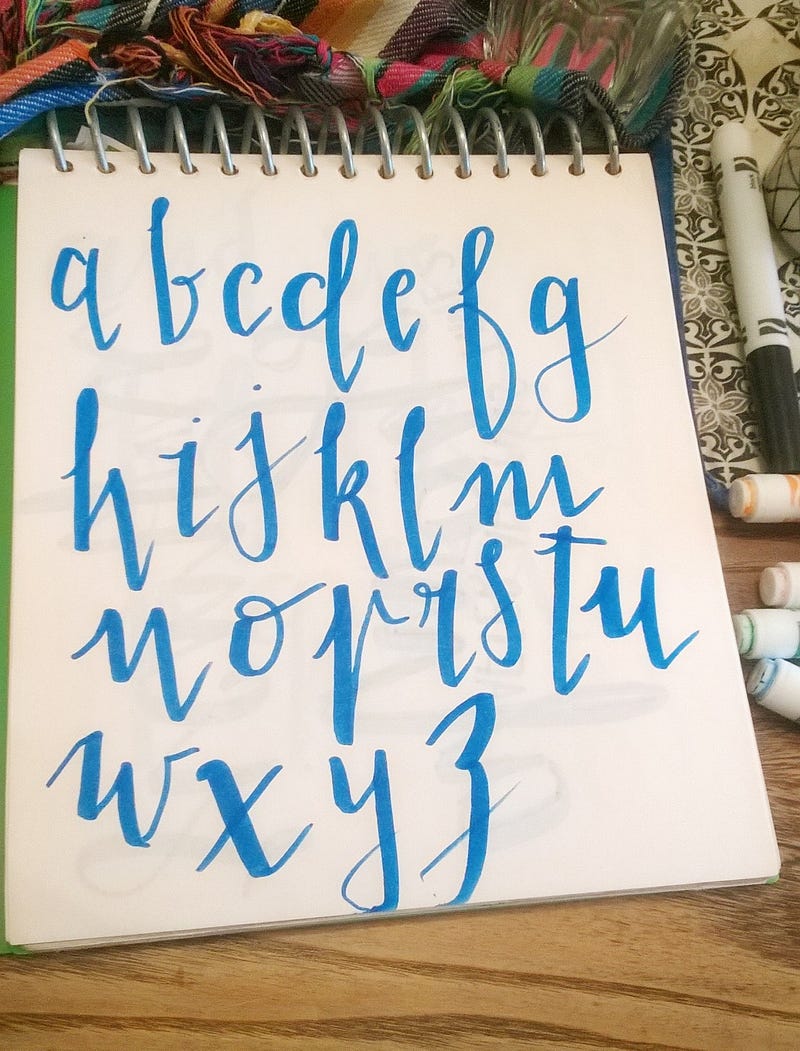 a b c d e f g
h i j k l m
n o p r s t u
w x y z